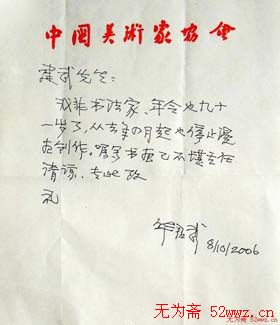 中國美術家協會
建武先生：
我非书法家、年令也九十
一岁了，从去年 月起也停止漫
画创作。嘱写书画已不堪
请谅、专此 致
礼
华君武 8/10/2006
无为斋 52wwz.cn
无为斋 52wwz.cn